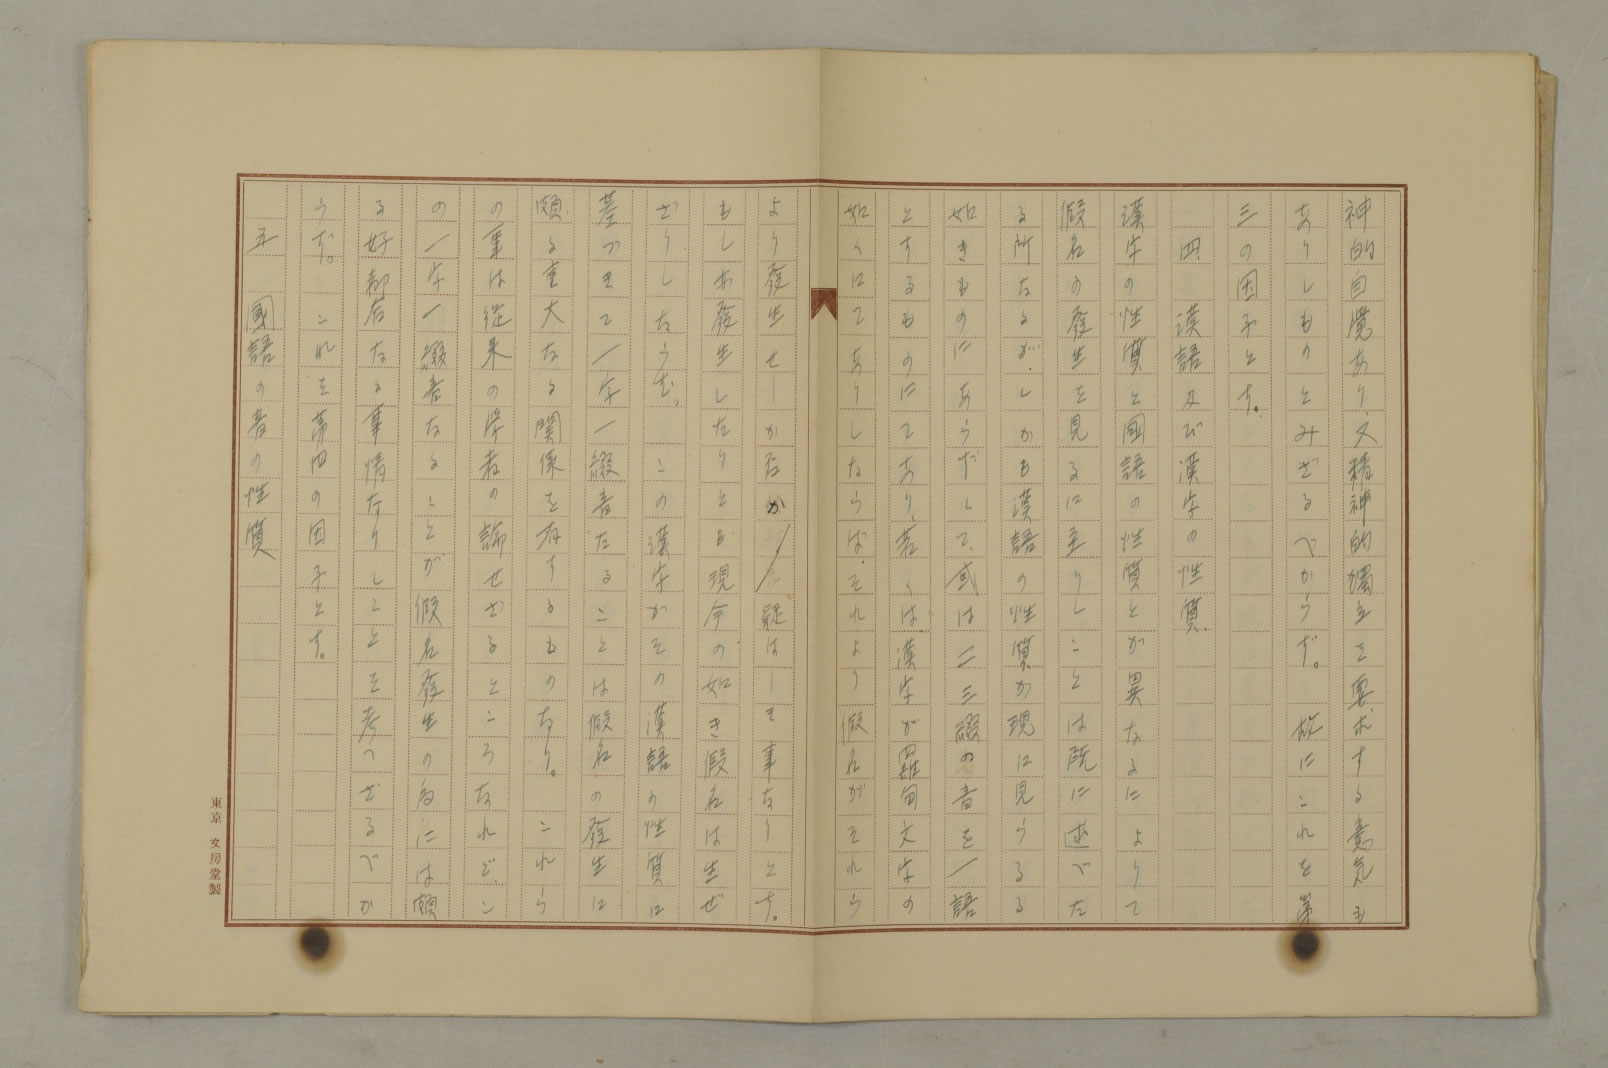 神的自覚あり、又精神的獨立を要求する意気も
ありしものとみざるべからず。故にこれを第
三の因子とす。
四　漢語及び漢字の性質
漢字の性質と國語の性質とが異なるによりて
假名の發生を見るに至りしことは既に述べた
る所なるが、しかも漢語の性質が現に見らるる
如きものにあらずして、或は二三綴の音を一語
とするものにてあり、若くは漢字が羅甸文字の
如くにてありしならば、それより假名がそれら
より發生せしか否か疑はしき事なりとす。
もしあ發生したりとも現今の如き假名は生ぜ
ざりしならむ。この漢字がその漢語の性質に
基づきて一字一綴音たることは假名の發生に
頗る重大なる関係を有するものなり。これら
の事は從来の学者の論せざるところなれど、こ
の一字一綴音なることが假名發生の為には頗
る好都合なる事情なりしことを考へざるべか
らず。これを第四の因子とす。
五　國語の音の性質
東京　文房堂製